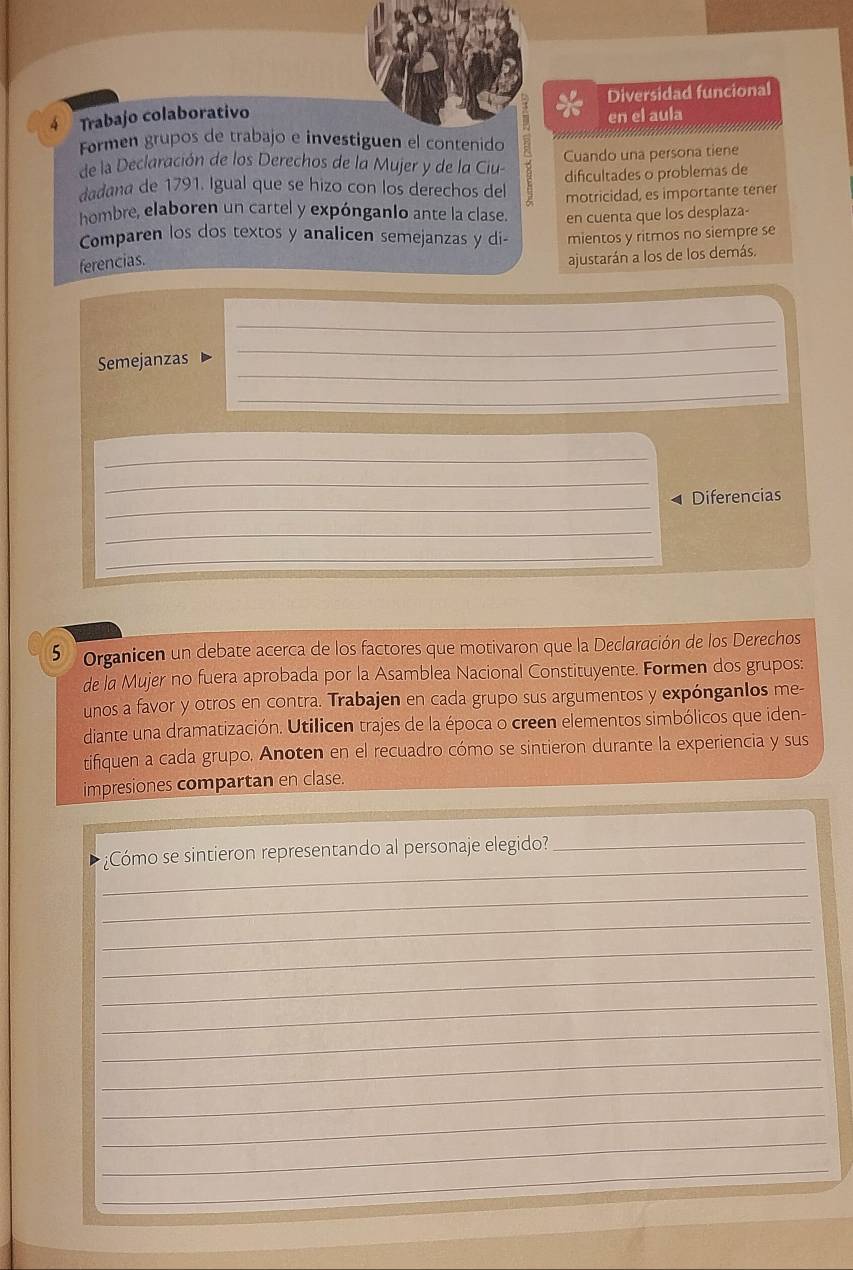 4 Trabajo colaborativo
Formen grupos de trabajo e investiguen el contenido
de la Declaración de los Derechos de la Mujer y de la Ciu-
dadana de 1791. Igual que se hizo con los derechos del
hombre, elaboren un cartel y expónganlo ante la clase.
Comparen los dos textos y analicen semejanzas y di-
ferencias.
Diversidad funcional
en el aula
Cuando una persona tiene
dificultades o problemas de
motricidad, es importante tener
en cuenta que los desplaza-
mientos y ritmos no siempre se
ajustarán a los de los demás.
Semejanzas
Diferencias
5 Organicen un debate acerca de los factores que motivaron que la Declaración de los Derechos
de la Mujer no fuera aprobada por la Asamblea Nacional Constituyente. Formen dos grupos:
unos a favor y otros en contra. Trabajen en cada grupo sus argumentos y expónganlos me-
diante una dramatización. Utilicen trajes de la época o creen elementos simbólicos que iden-
tifiquen a cada grupo. Anoten en el recuadro cómo se sintieron durante la experiencia y sus
impresiones compartan en clase.
¿Cómo se sintieron representando al personaje elegido?